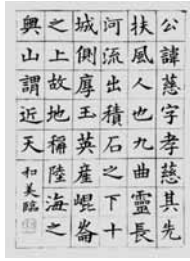 公諱慈字孝慈其先
扶風人也九曲靈長
河流出積石之下十
城側厚玉英產崐崙
之上故地稱陸海之
奧山謂近天
和美臨